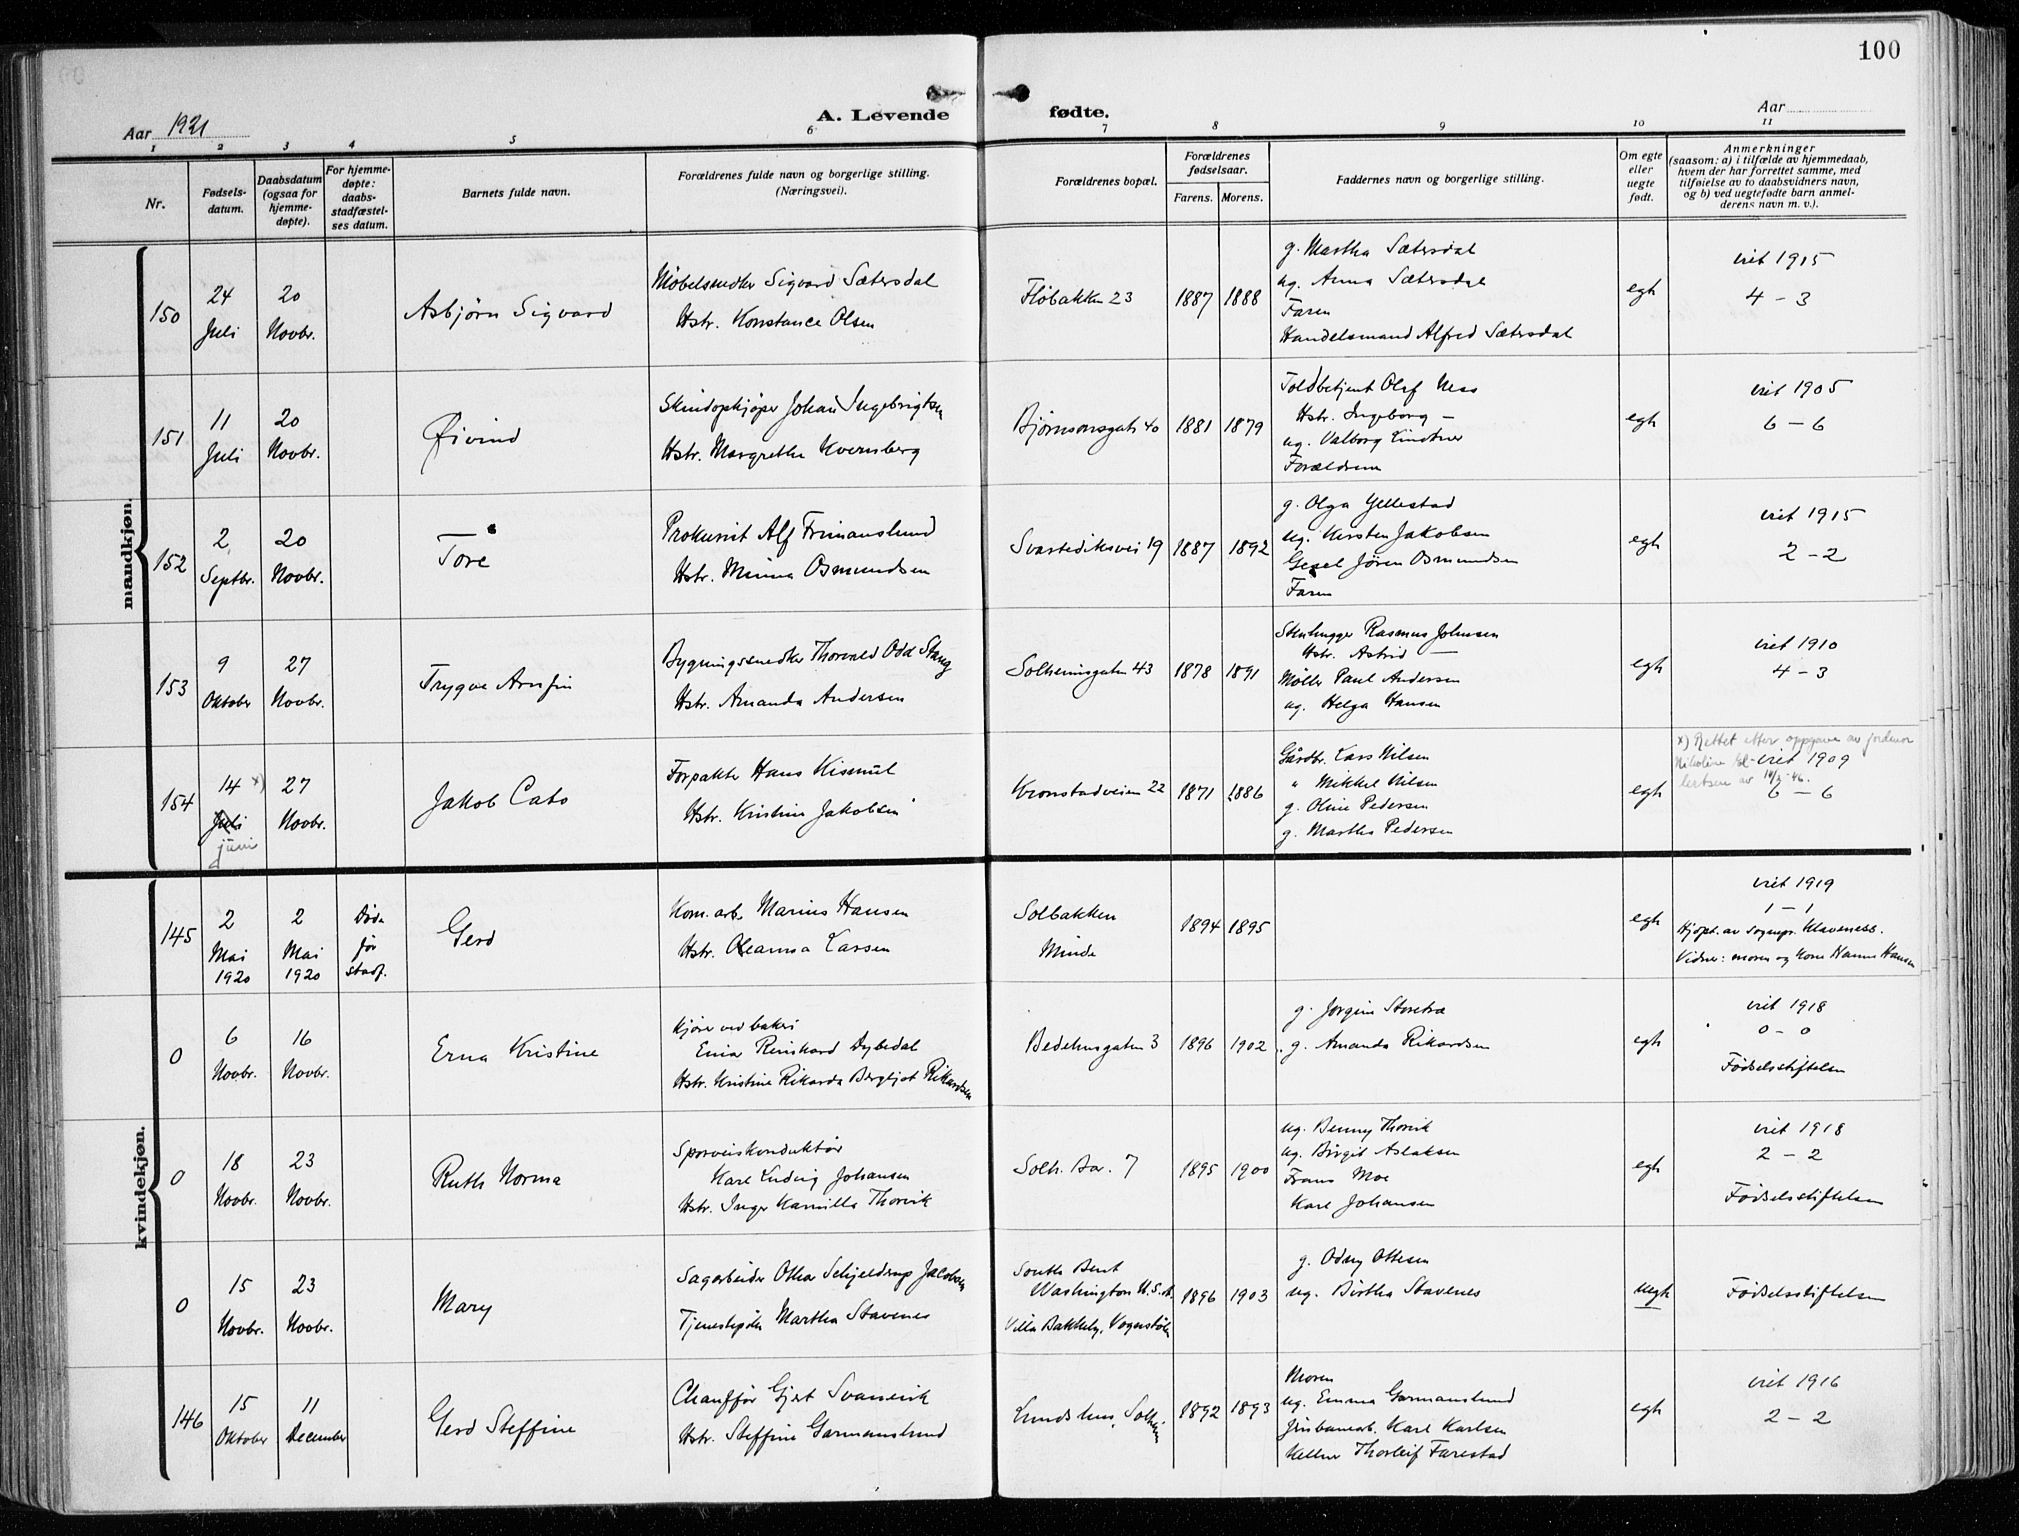 100
A. Levende fødte.
Aar 1921
Aar
1 2 3 4 5 6 7 8 9 10 11
Nr.
Fødsels-
datum.
Daabsdatum
(ogsaa for
hjemme-
døpte).
For hjemme-
døpte:
daabs-
stadfæstel-
ses datum.
Barnets fulde navn.
Forældrenes fulde navn og borgerlige stilling.
(Næringsvei).
Forældrenes bopæl.
Forældrenes
fødselsaar.
Farens. Morens.
Faddernes navn og borgerlige stilling.
Om egte
eller
uegte
født.
Anmerkninger
(saasom: a) i tilfælde av hjemmedaab,
hvem der har forrettet samme, med
tilføielse av to daabsvidners navn,
og b) ved uegtefødte barn anmel-
derens navn m. v.).
mandkjøn.
150
24
Juli
20
Novbr.
Asbjørn Sigvard
Møbelsnedker Sigvard Sætersdal
Hstr. Konstance Olsen
Fløbakken 23
1887
1888
g. Martha Sætersdal
ug. Anna Sætersdal
Faren
Handelsmand Alfred Sætersdal
egte
viet 1915
4 – 3
151
11
Juli
20
Novbr.
Øivind
Skindopkjøper Johan Ingebrigtsen
Hstr. Margrethe Kvernberg
Bjørnsonsgate 40
1881
1879
Toldbetjent Olaf Ness
Hstr. Ingeborg –
ug. Valborg Lindtner
Forældrene
egte
viet 1905
6 – 6
152
2
Septbr.
20
Novbr.
Tore
Prokurist Alf Frimanslund
Hstr. Minna Osmundsen
Svartediksvei 19
1887
1892
g. Olga Gellestad
ug. Kirsten Jakobsen
Gesel Jören Osmundsen
Faren
egte
viet 1915
2 – 2
153
9
Oktober
27
Novbr.
Trygve Arnfin
Bygningssnedker Thorvald Odd Stang
Hstr. Amanda Andersen
Solheimsgaten 43
1878
1891
Stenhugger Rasmus Johnsen
Hstr. Astrid –
Møller Paul Andersen
ug. Helga Hansen
egte
viet 1910
4 – 3
154
14 x)
Juli
juni
27
Novbr.
Jakob Cato
Forpakter Hans Kismul
Hstr. Kristine Jakobsen
Kronstadveien 22
1871
1886
Gårdbr. Lars Nilsen
" Mikkel Nilsen
g. Oline Pedersen
g. Martha Pedersen
egte
x) Rettet etter oppgave av jordmor
Nikoline
viet 1909
6 – 6
kvindekjøn.
145
2
Mai
1920
2
Mai
1920
Døde
før
stadf.
Gerd
Kom. arb. Marius Hansen
Hstr. Oleanna Larsen
Solbakken
Minde
1894
1895
egte
viet 1919
1 – 1
Hjdpt. av Sognepr. Klaveness.
Vidner: moren og kone Hanna Hansen
0
6
Novbr.
16
Novbr.
Erna Kristine
Kjører ved bakeri
Einar Reinhard Dybedal
Hstr. Kristine Rikarda Bergljot Rikardsen
Bedehusgaten 3
1896
1902
g. Jørgine Storetvæ
g. Amanda Rikardsen
egte
viet 1918
0 – 0
Fødselsstiftelsen
0
18
Novbr.
23
Novbr.
Ruth Norma
Sporveiskonduktør
Karl Ludvig Johansen
Hstr. Inger Kamilla Thorvik
Solh. Bar. 7
1895
1900
ug. Benny Thorvik
ug. Birgit Aslaksen
Frans Moe
Karl Johansen
egte
viet 1918
2 – 2
Fødselsstiftelsen
0
15
Novbr.
23
Novbr.
Mary
Sagarbeider Othar Schjelderup Jacobsen
Tjenestepike Martha Stavenes
South Bent
Washington U.S.A.
Villa Bakkely, Vognstølen
1896
1903
g. Odny Ottesen
ug. Birtha Stavenes
uegte
Fødselsstiftelsen
146
15
Oktober
11
December
Gerd Steffine
Chauffør Gjert Svanevik
Hstr. Steffine Garmanslund
Lundshus, Solheim
1892
1893
Moren
ug. Emma Garmanslund
Jernbanearb. Karl Karlsen
Kelner Thorleif Farestad
egte
viet 1916
2 – 2